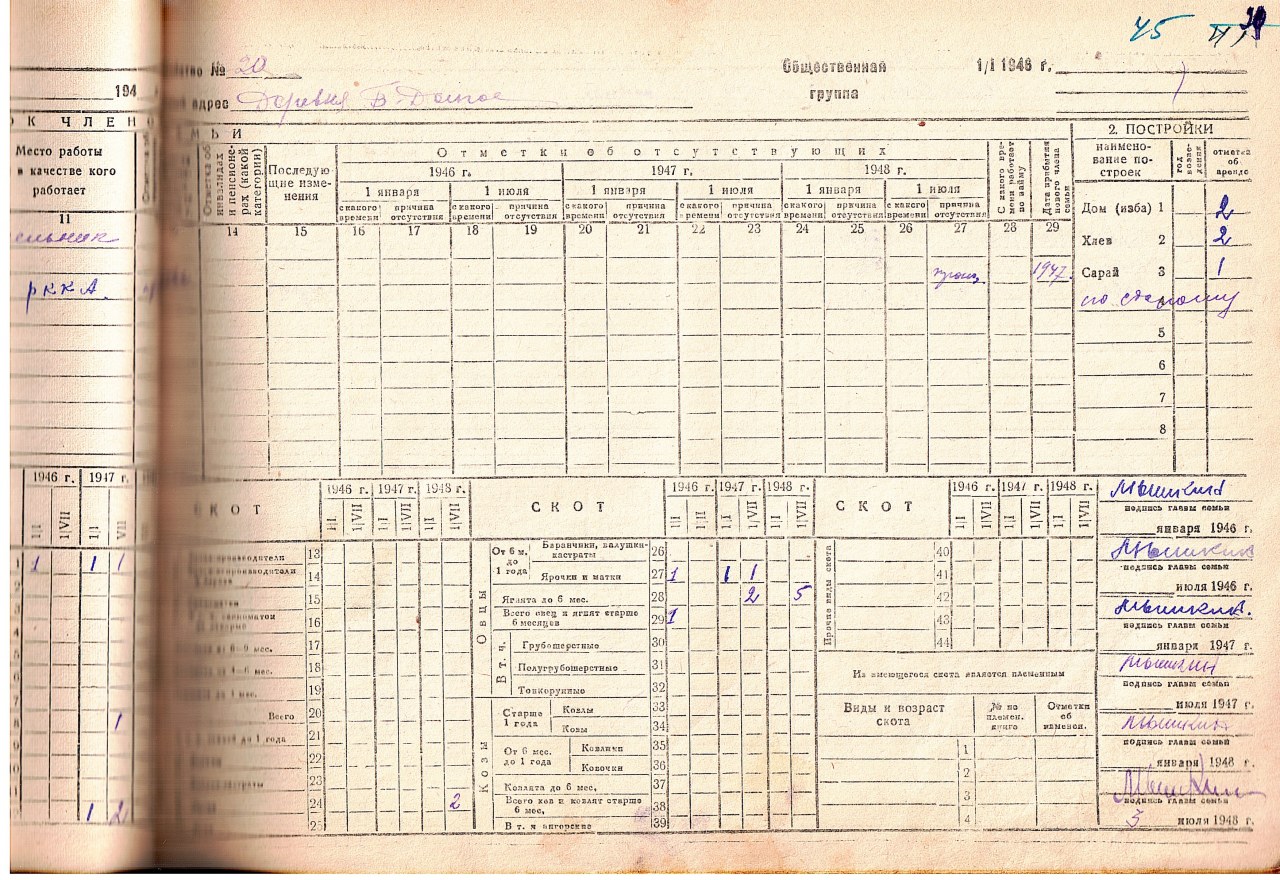 45
№ 20 Общественная 1/I 1946 г.
194 группа
адрес Деревня Б-
ЧЛЕН ЬИ 2. ПОСТРОЙКИ
Место работы
в качестве кого
работает
Отметка об инвалидах и пенсионерах (какой категории)
Последующие изменения
Отметки об отсутствующих
1946 г. 1947 г. 1948 г.
1 января 1 июля 1 января 1 июля 1 января 1 июля
с какого времени причина отсутствия с какого времени причина отсутствия с какого времени причина отсутствия с какого времени причина отсутствия с какого времени причина отсутствия с какого времени причина отсутствия
С какого времени работает по найму
Дата прибытия нового члена семьи
наименование построек
год возведения
отметка об аренде
11 14 15 16 17 18 19 20 21 22 23 24 25 26 27 28 29
Дом (изба) 1 2
ельник
Хлев 2 2
Сарай 3 1
1947.
РККА.
по старому
5
6
7
8
1946 г. 1947 г.
1/I 1/VII 1/I VII
СКОТ 1946 г. 1947 г. 1948 г.
1/I 1/VII 1/I 1/VII 1/I 1/VII
производители 13
производители 14
15
16
6–9 мес. 17
4–6 мес. 18
до 1 мес. 19
Всего 20
до 1 года 21
22
23
24 2
25
1 1 1
1
1 2
СКОТ 1946 г. 1947 г. 1948 г.
1/I 1/VII 1/I 1/VII 1/I 1/VII
Овцы
От 6 м. до 1 года
Баранчики, валушки-кастраты 26
Ярочки и матки 27 1 1 1
Ягнята до 6 мес. 28 2 5
Всего овец и ягнят старше 6 месяцев 29 1
В т. ч.
Грубошерстные 30
Полугрубошерстные 31
Тонкорунные 32
Козы
Старше 1 года
Козлы 33
Козы 34
От 6 мес. до 1 года
Козлики 35
Козочки 36
Козлята до 6 мес. 37
Всего коз и козлят старше 6 мес. 38
В т. ч ангорские 39
СКОТ 1946 г. 1947 г. 1948 г.
1/I 1/VII 1/I 1/VII 1/I 1/VII
Прочие виды скота
40
41
42
43
44
Из имеющегося скота является племенным
Виды и возраст скота
№ по племен. книге
Отметки об изменен.
1
2
3
4
Мышкина
подпись главы семьи
января 1946 г.
Мышкин
подпись главы семьи
июля 1946 г.
Мышкина.
подпись главы семьи
января 1947 г.
Мышкин
подпись главы семьи
июля 1947 г.
Мышкина
подпись главы семьи
января 1948 г.
Мышкин
подпись главы семьи
3 июля 1948 г.